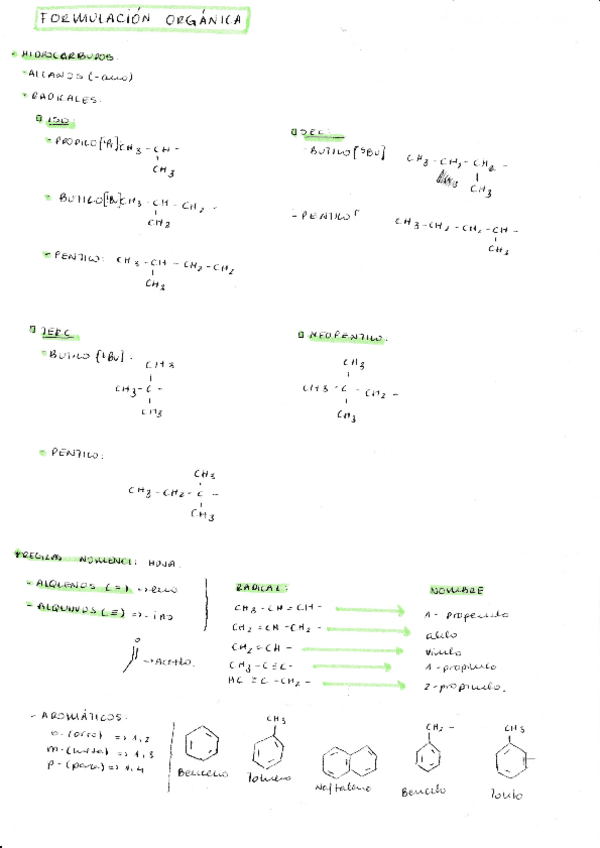 FORMULACIÓN ORGÁNICA
HIDROCARBUROS:
ALCANOS (-ano)
RADICALES:
ISO:
PROPILO [iPr] CH3 - CH -
CH3
BUTILO [iBu] CH3 - CH - CH2 -
CH3
PENTILO: CH3 - CH - CH2 - CH2
CH3
SEC:
- BUTILO [sBu] CH3 - CH2 - CH2 -
CH3
- PENTILO CH3 - CH2 - CH2 - CH -
CH3
TERC
BUTILO [tBu]:
CH3
CH3 - C -
CH3
NEOPENTILO:
CH3
CH3 - C - CH2 -
CH3
PENTILO:
CH3
CH3 - CH2 - C -
CH3
REGLAS NOMENCL: HOJA.
- ALQUENOS (=) => eno
- ALQUINOS (≡) => - ino
O
RADICAL: NOMBRE
CH3 - CH = CH - 1 - propenilo
CH2 = CH - CH2 - alilo
CH2 = CH - vinilo
CH3 - C ≡ C - 1 - propinilo
HC ≡ C - CH2 - 2 - propinilo.
- AROMÁTICOS:
o - (orto) => 1, 2
m - (meta) => 1, 3
p - (para) => 1, 4
Benceno
CH3
Tolueno
Naftaleno
CH2 -
Bencilo
CH3